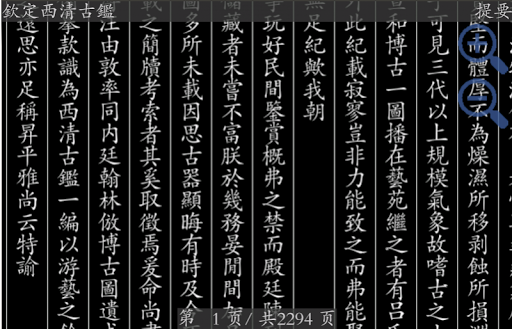 欽定西清古鑑
提要
而體厚不為燥濕所移剥蝕所損淵
可見三代以上規模氣象故嗜古之
宣和博古一圖播在藝苑繼之者有呂
此紀載寂寥豈非力能致之而弗能聚
無足紀歟我朝
玩好民間鑒賞概弗之禁而殿廷陳
儲藏者未嘗不富朕於幾務晏閒間加
圖多所未載因思古器顯晦有時及今
載之簡牘考索者其奚取徵焉爰命尚書
汪由敦率同內廷翰林倣博古圖遺式
款識為西清古鑑一編以游藝之餘
遠思亦足稱昇平雅尚云特諭
第 1 页/ 共2294 页